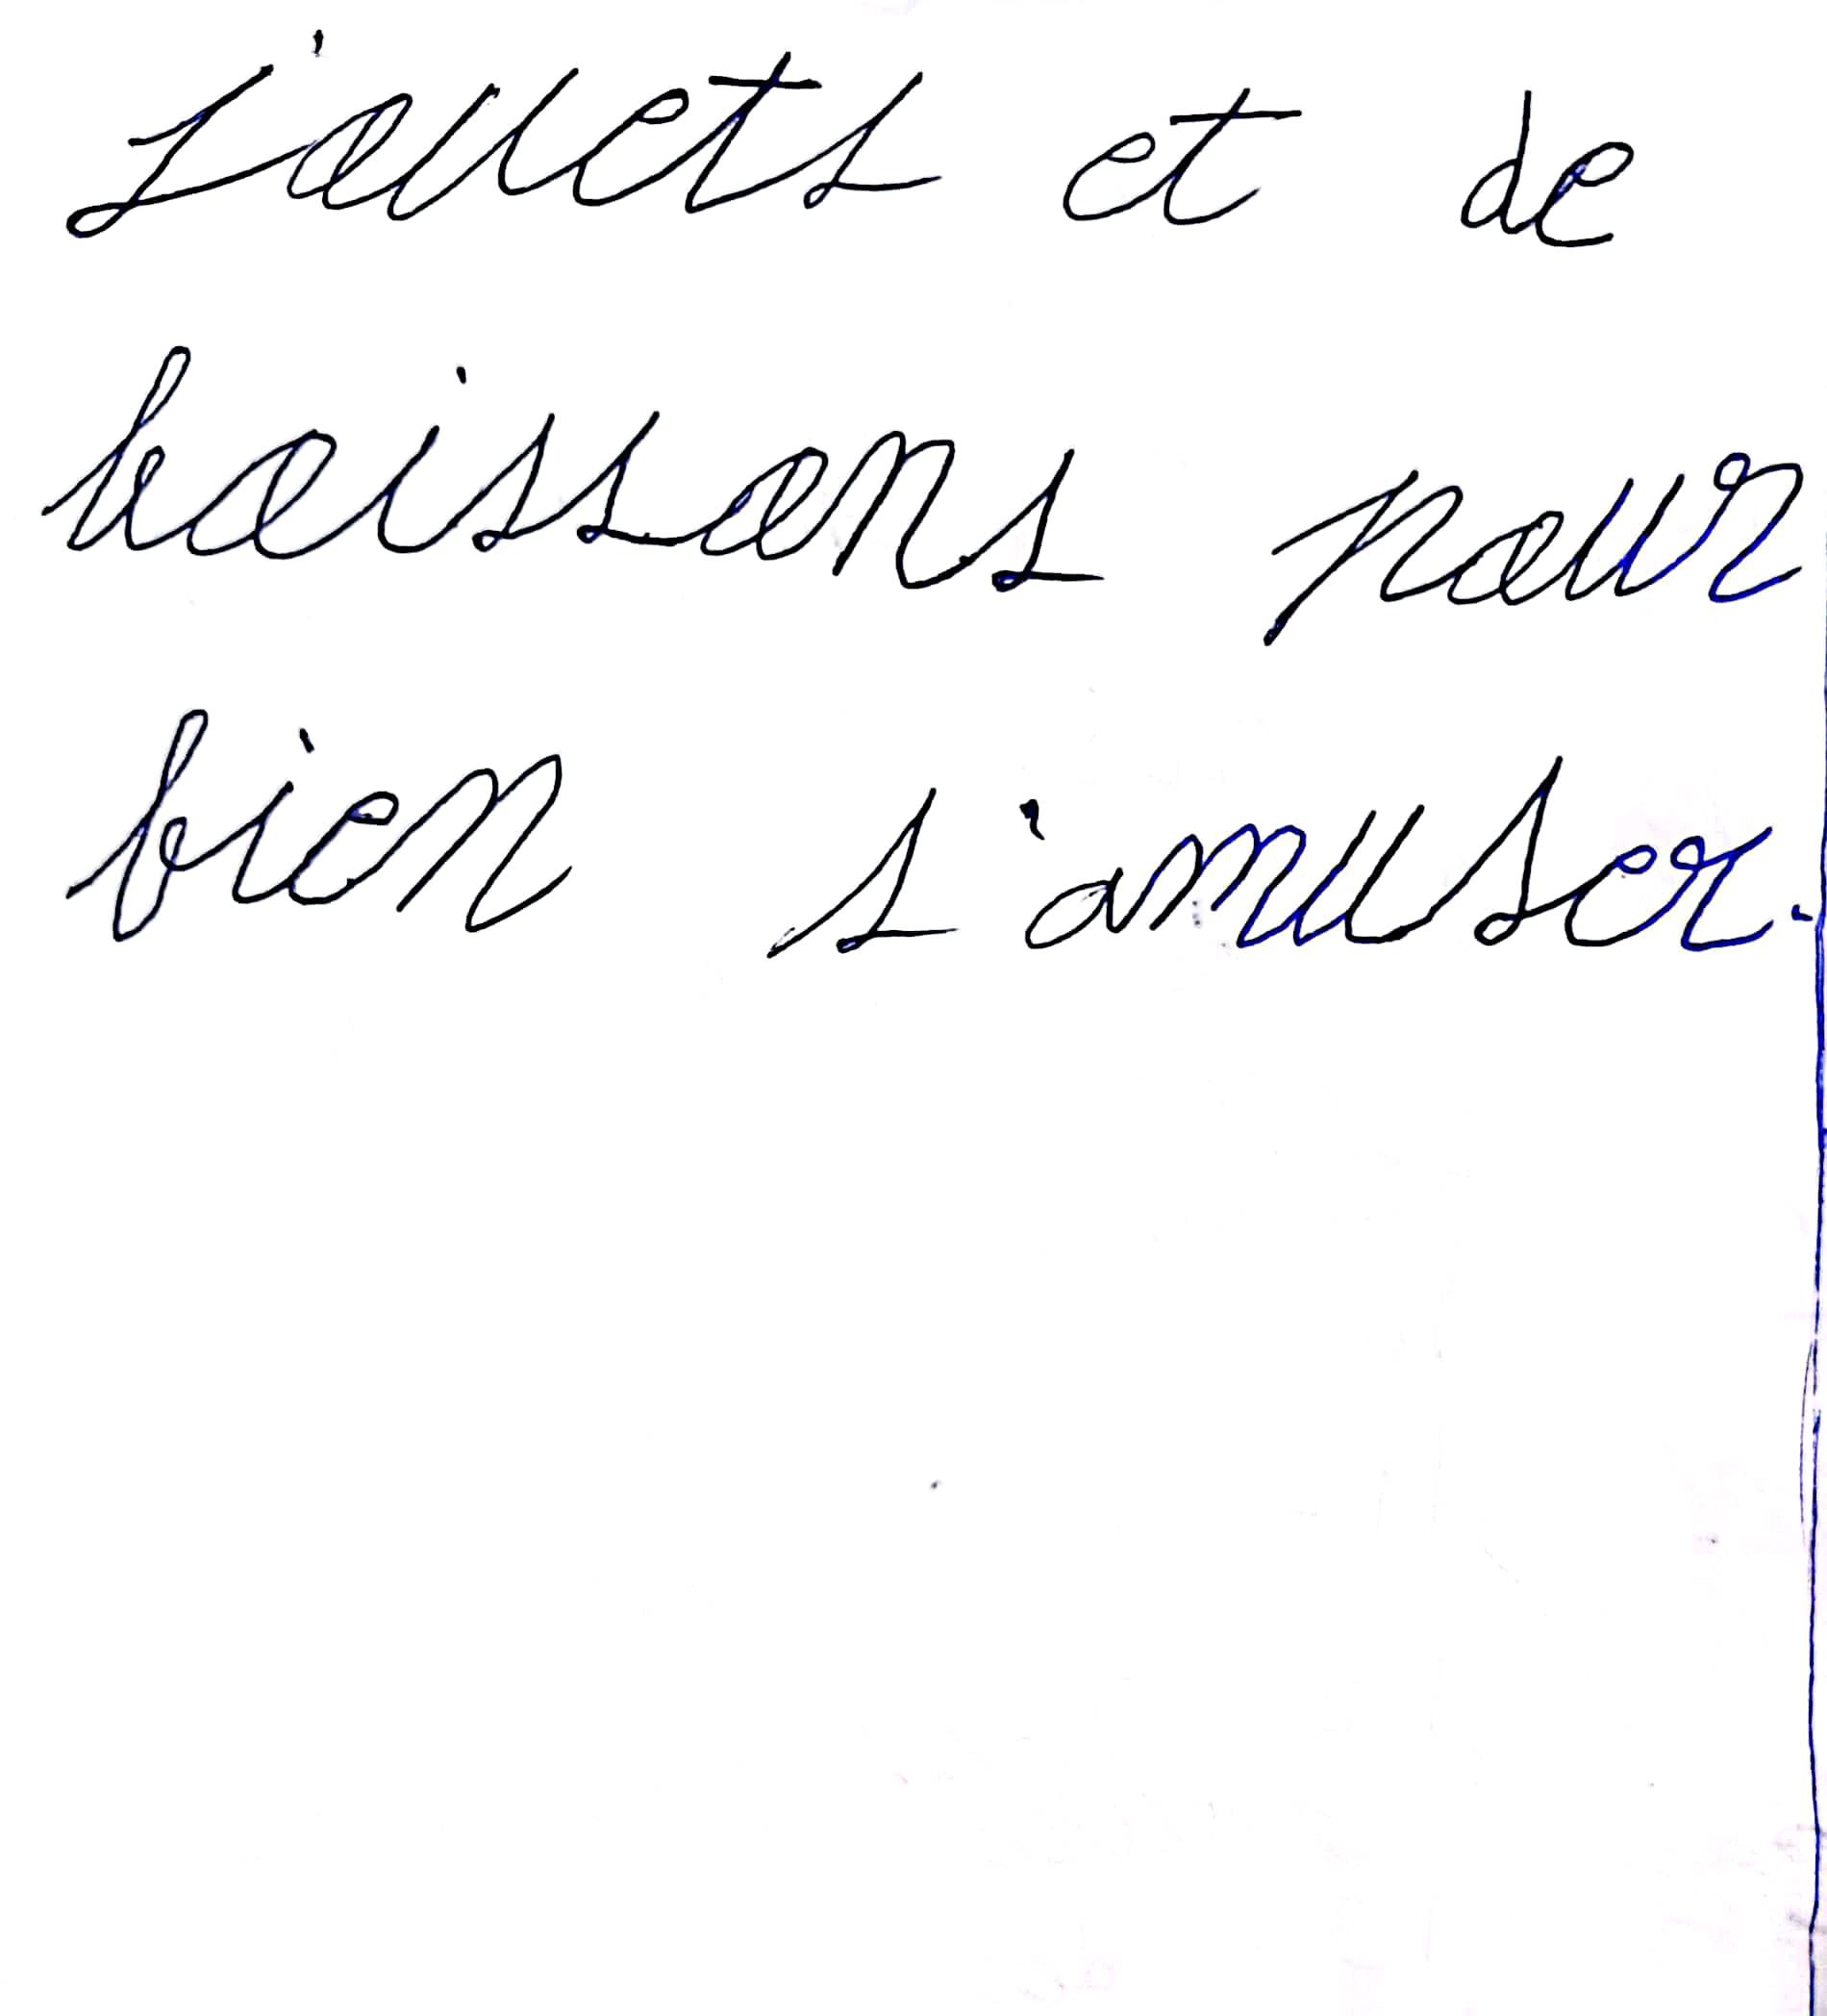 jouets et de
boissons pour
bien s'amuser.